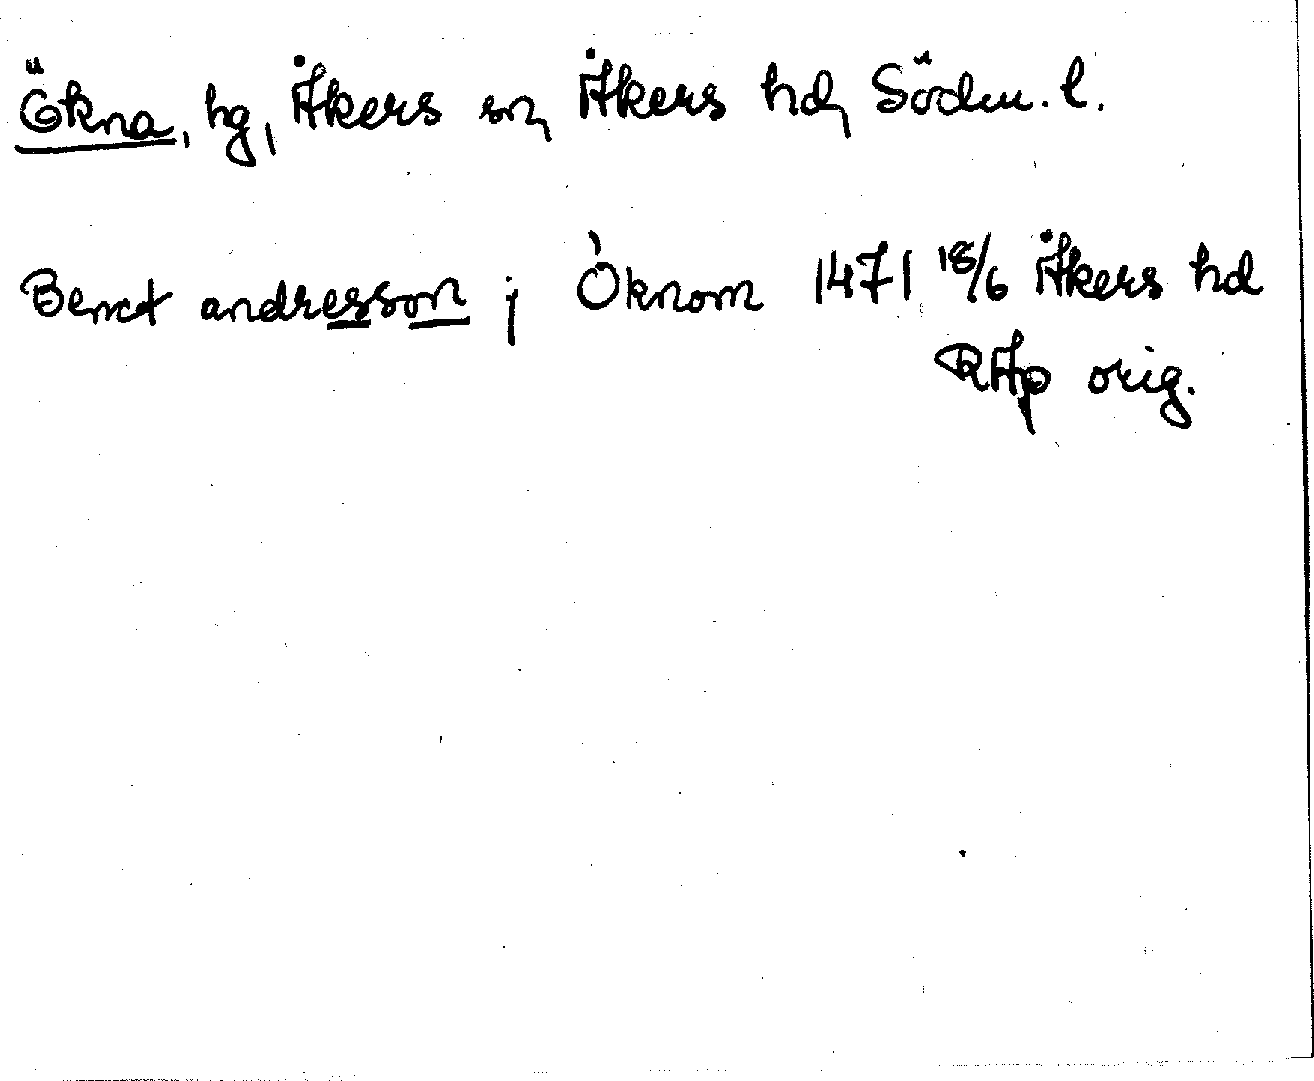 Ökna, hg, Åkers sn, Åkers hd, Söderm. l.
Benct andresson j Òknom 1471 18/6 Åkers hd
RAp orig.